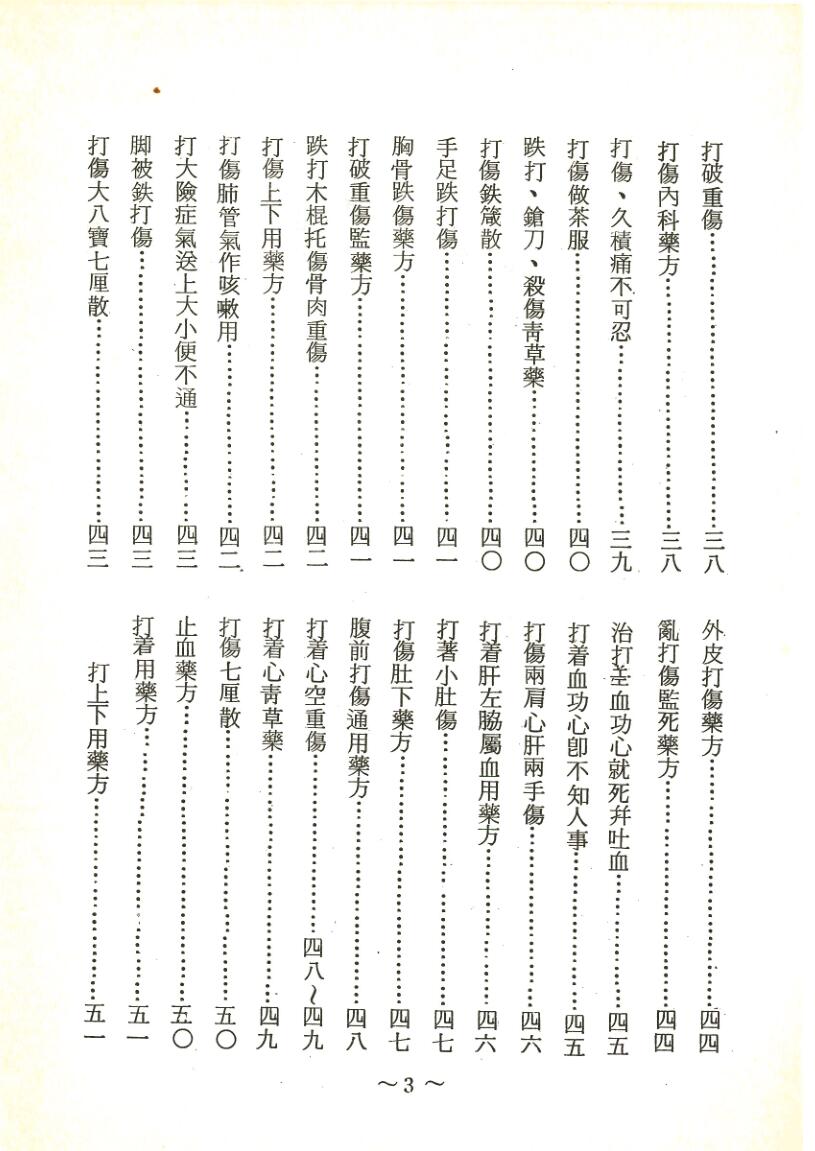 打破重傷⋯⋯⋯⋯⋯⋯⋯⋯三八
打傷內科藥方⋯⋯⋯⋯⋯⋯⋯⋯三八
打傷、久積痛不可忍⋯⋯⋯⋯⋯⋯三九
打傷做茶服⋯⋯⋯⋯⋯⋯⋯⋯四〇
跌打、鎗刀、殺傷靑草藥⋯⋯⋯⋯四〇
打傷鉄箴散⋯⋯⋯⋯⋯⋯⋯⋯四〇
手足跌打傷⋯⋯⋯⋯⋯⋯⋯⋯四一
胸骨跌傷藥方⋯⋯⋯⋯⋯⋯⋯四一
打破重傷監藥方⋯⋯⋯⋯⋯⋯四一
跌打木棍托傷骨肉重傷⋯⋯⋯⋯四二
打傷上下用藥方⋯⋯⋯⋯⋯⋯四二
打傷肺管氣作咳嗽用⋯⋯⋯⋯⋯四二
打大險症氣送上大小便不通⋯⋯⋯四三
脚被鉄打傷⋯⋯⋯⋯⋯⋯⋯⋯四三
打傷大八寶七厘散⋯⋯⋯⋯⋯⋯四三
外皮打傷藥方⋯⋯⋯⋯⋯⋯⋯四四
亂打傷監死藥方⋯⋯⋯⋯⋯⋯四四
治打羗血功心就死幷吐血⋯⋯⋯⋯四五
打着血功心卽不知人事⋯⋯⋯⋯四五
打傷兩肩心肝兩手傷⋯⋯⋯⋯⋯四六
打着肝左脇屬血用藥方⋯⋯⋯⋯四六
打著小肚傷⋯⋯⋯⋯⋯⋯⋯⋯四七
打傷肚下藥方⋯⋯⋯⋯⋯⋯⋯四七
腹前打傷通用藥方⋯⋯⋯⋯⋯⋯四八
打着心空重傷⋯⋯⋯⋯⋯⋯四八~四九
打着心靑草藥⋯⋯⋯⋯⋯⋯⋯四九
打傷七厘散⋯⋯⋯⋯⋯⋯⋯⋯五〇
止血藥方⋯⋯⋯⋯⋯⋯⋯⋯五〇
打着用藥方⋯⋯⋯⋯⋯⋯⋯⋯五一
打上下用藥方⋯⋯⋯⋯⋯⋯⋯五一
~3~